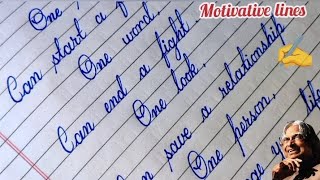 Motivative lines
One
Can start a
One word,
Can end a fight
One look,
Can save a relationship
One person,
life